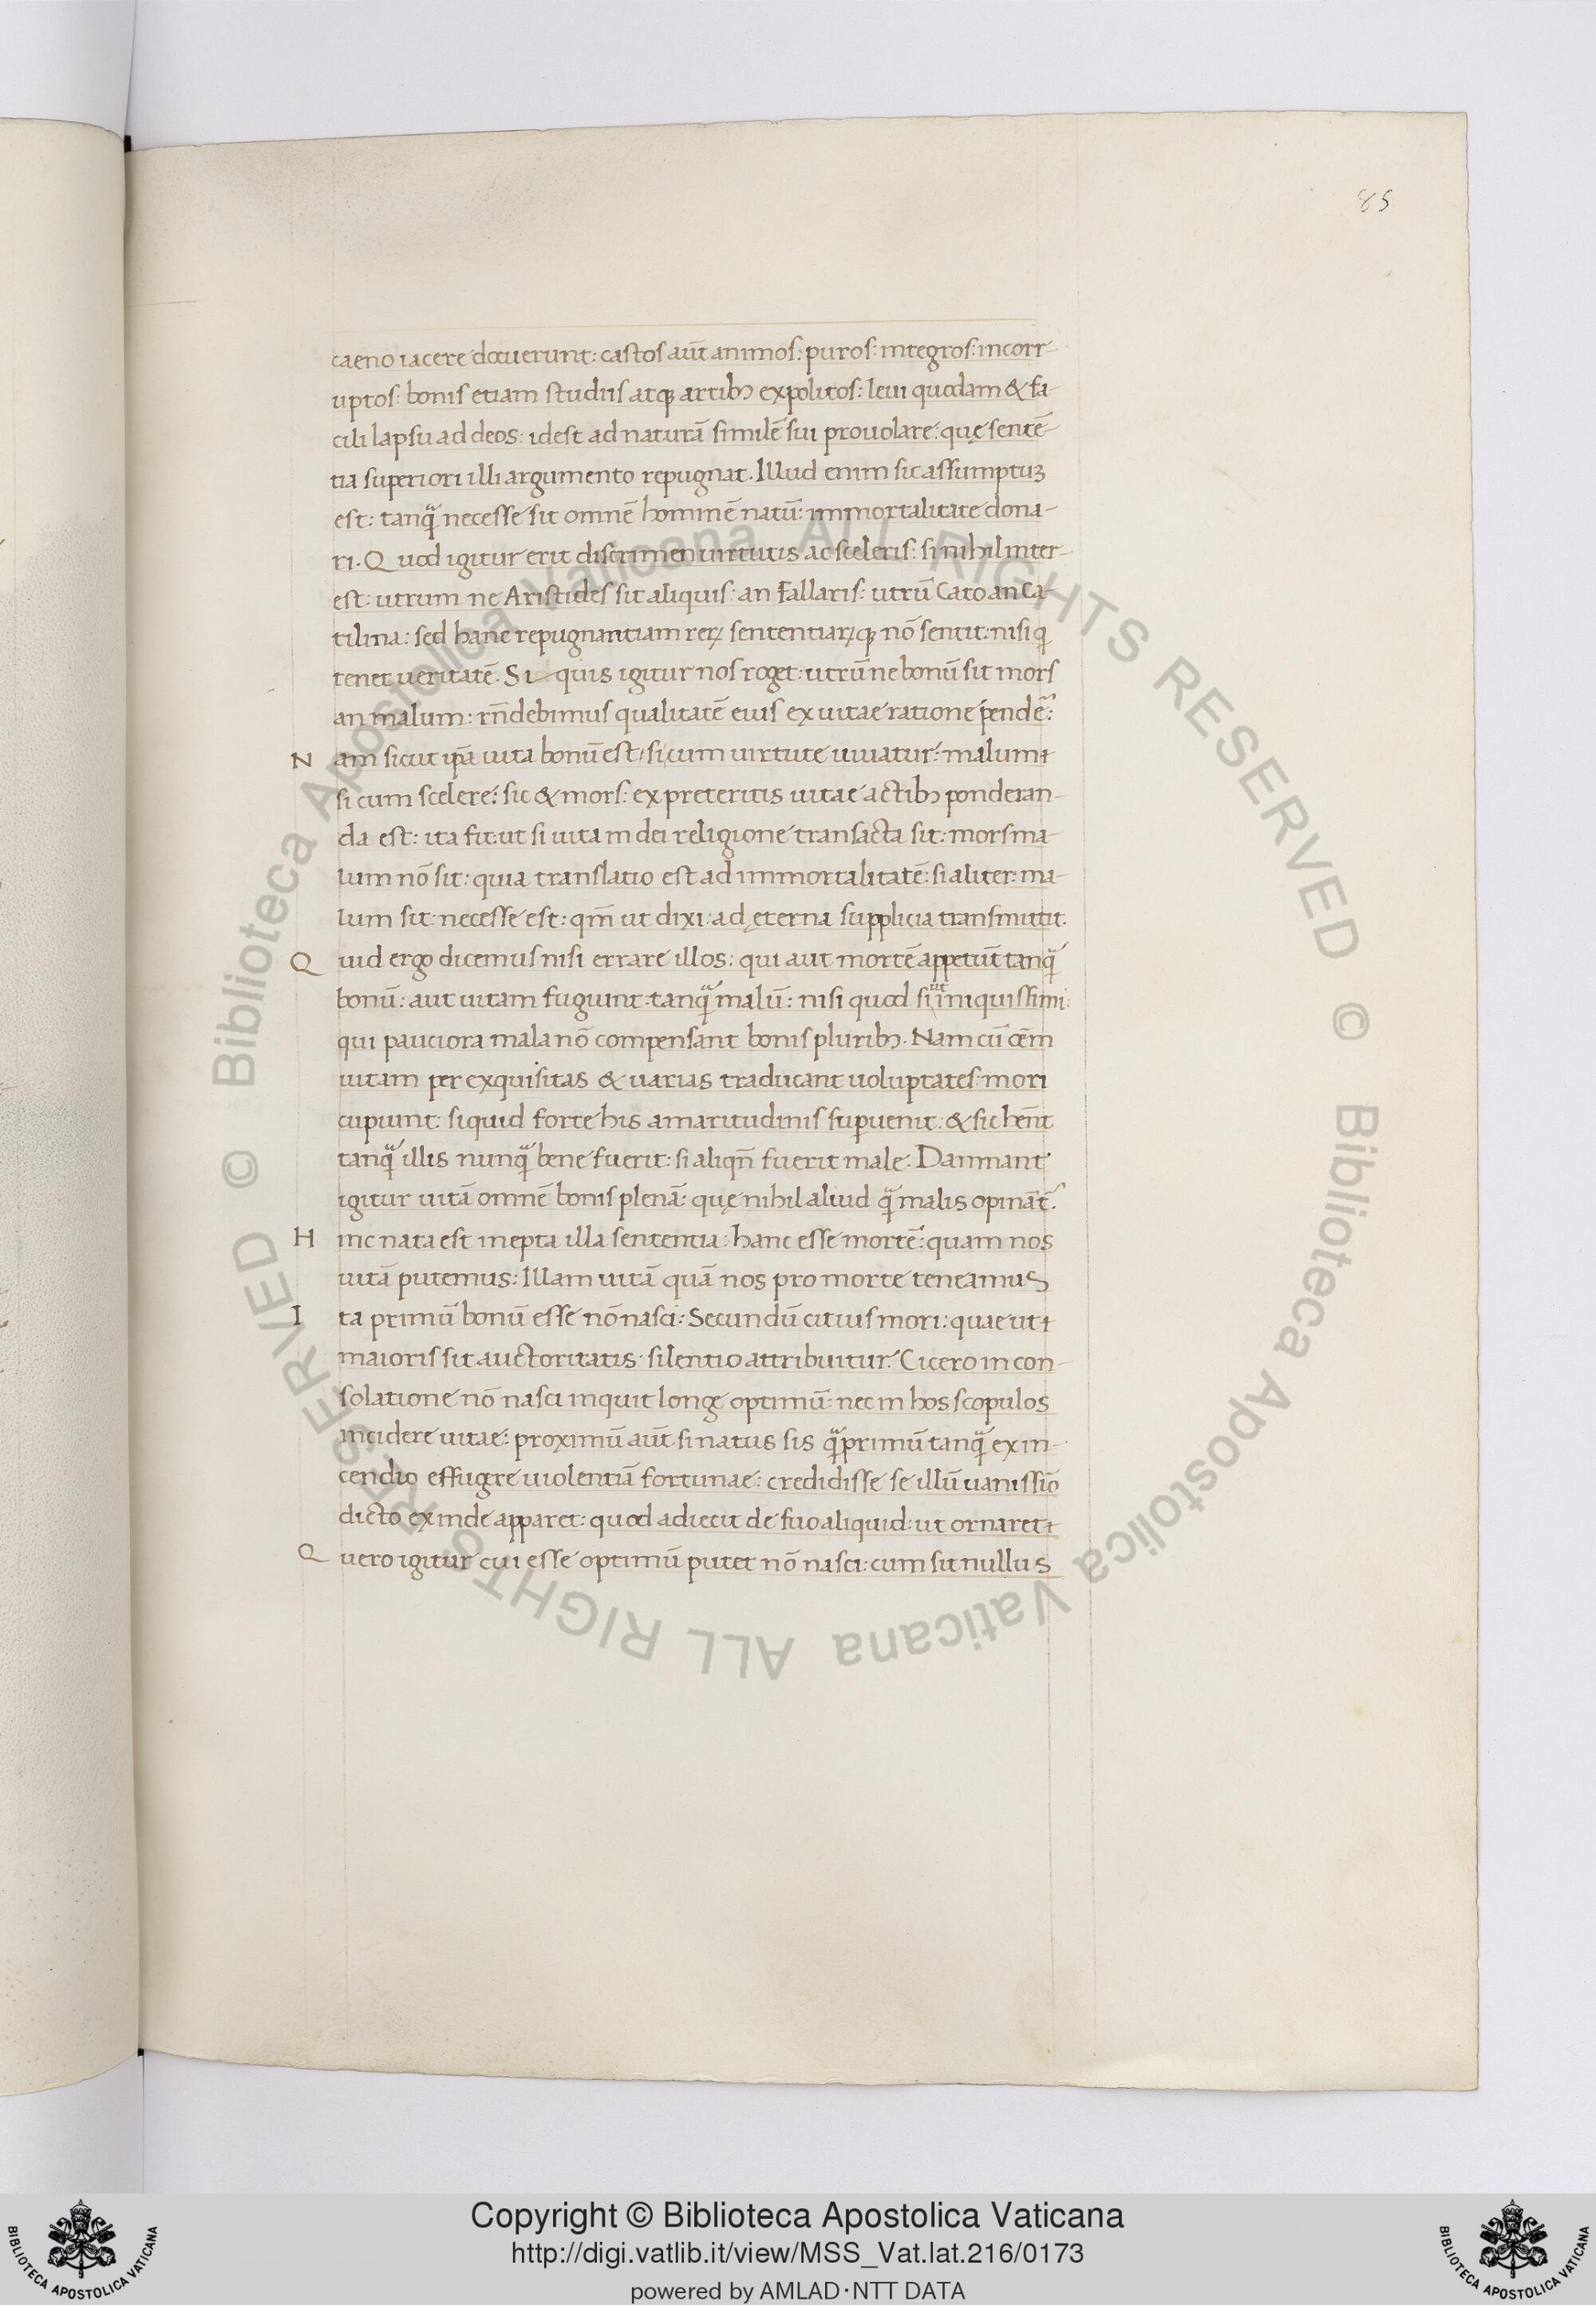 85
caeno iacere docuerunt: castos aut̄ animos: puros: integros: incorr-
uptos: bonis etiam studiis atqꝫ artibꝫ expolitos: leui quodam & fa-
cili lapsu ad deos: idest ad naturā similē sui prouolare: quę sentē-
tia superiori illi argumento repugnat. Illud enim sic assumptuꝫ
est: tanq̃ necesse sit omnē hominē natū: immortalitate dona-
ri. Quod igitur erit discrimen uirtutis ac sceleris: si nihil inter-
est: utrum ne Aristides sit aliquis: an Fallaris: utrū Cato an Ca-
tilina: sed hanc repugnantiam reꝝ sententiaꝝqꝫ nō sentit: nisi q
tenet ueritatē. Si quis igitur nos roget: utrū ne bonū sit mors
an malum: rn̄debimus qualitatē eius ex uitae ratione pendē:
Nam sicut ip̄a uita bonū est: si cum uirtute uiuatur: malum
si cum scelere: sic & mors: ex preteritis uitae actibꝫ ponderan-
da est: ita fit: ut si uita in dei religione transacta sit: mors ma-
lum nō sit: quia translatio est ad immortalitatē: si aliter: ma-
lum sit necesse est: qm̄ ut dixi: ad ęterna supplicia transmittit.
Quid ergo dicemus nisi errare illos: qui aut mortē appetūt tanq̃
bonū: aut uitam fugiunt: tanq̃ malū: nisi quod sūt iniquissimi:
qui pauciora mala nō compensant bonis pluribꝫ. Nam cū oēm
uitam per exquisitas & uarias traducant uoluptates: mori
cupiunt: si quid forte his amaritudinis supuenit: & sic hēnt
tanq̃ illis nunq̃ bene fuerit: si aliqn̄ fuerit male. Damnant
igitur uitā omnē bonis plenā: quę nihil aliud q̃ malis opināt̄.
Hinc nata est inepta illa sententia: hanc esse mortē: quam nos
uitā putemus: Illam uitā quā nos pro morte teneamus
Ita primū bonū esse nō nasci: Secundū citius mori: quae ut
maioris sit auctoritatis: silentio attribuitur. Cicero in con-
solatione nō nasci inquit longe optimū: nec in hos scopulos
incidere uitae: proximū aut̄ si natus sis q̃primū tanq̃ ex in-
cendio effugere uiolentiā fortunae: credidisse se illū uanissīo
dicto exinde apparet: quod adiecit de suo aliquid: ut ornaret
Quero igitur cui esse optimū putet nō nasci: cum sit nullus
© Biblioteca Apostolica Vaticana ALL RIGHTS RESERVED
© Biblioteca Apostolica Vaticana ALL RIGHTS RESERVED
Copyright © Biblioteca Apostolica Vaticana
http://digi.vatlib.it/view/MSS_Vat.lat.216/0173
powered by AMLAD·NTT DATA
BIBLIOTECA APOSTOLICA VATICANA
BIBLIOTECA APOSTOLICA VATICANA